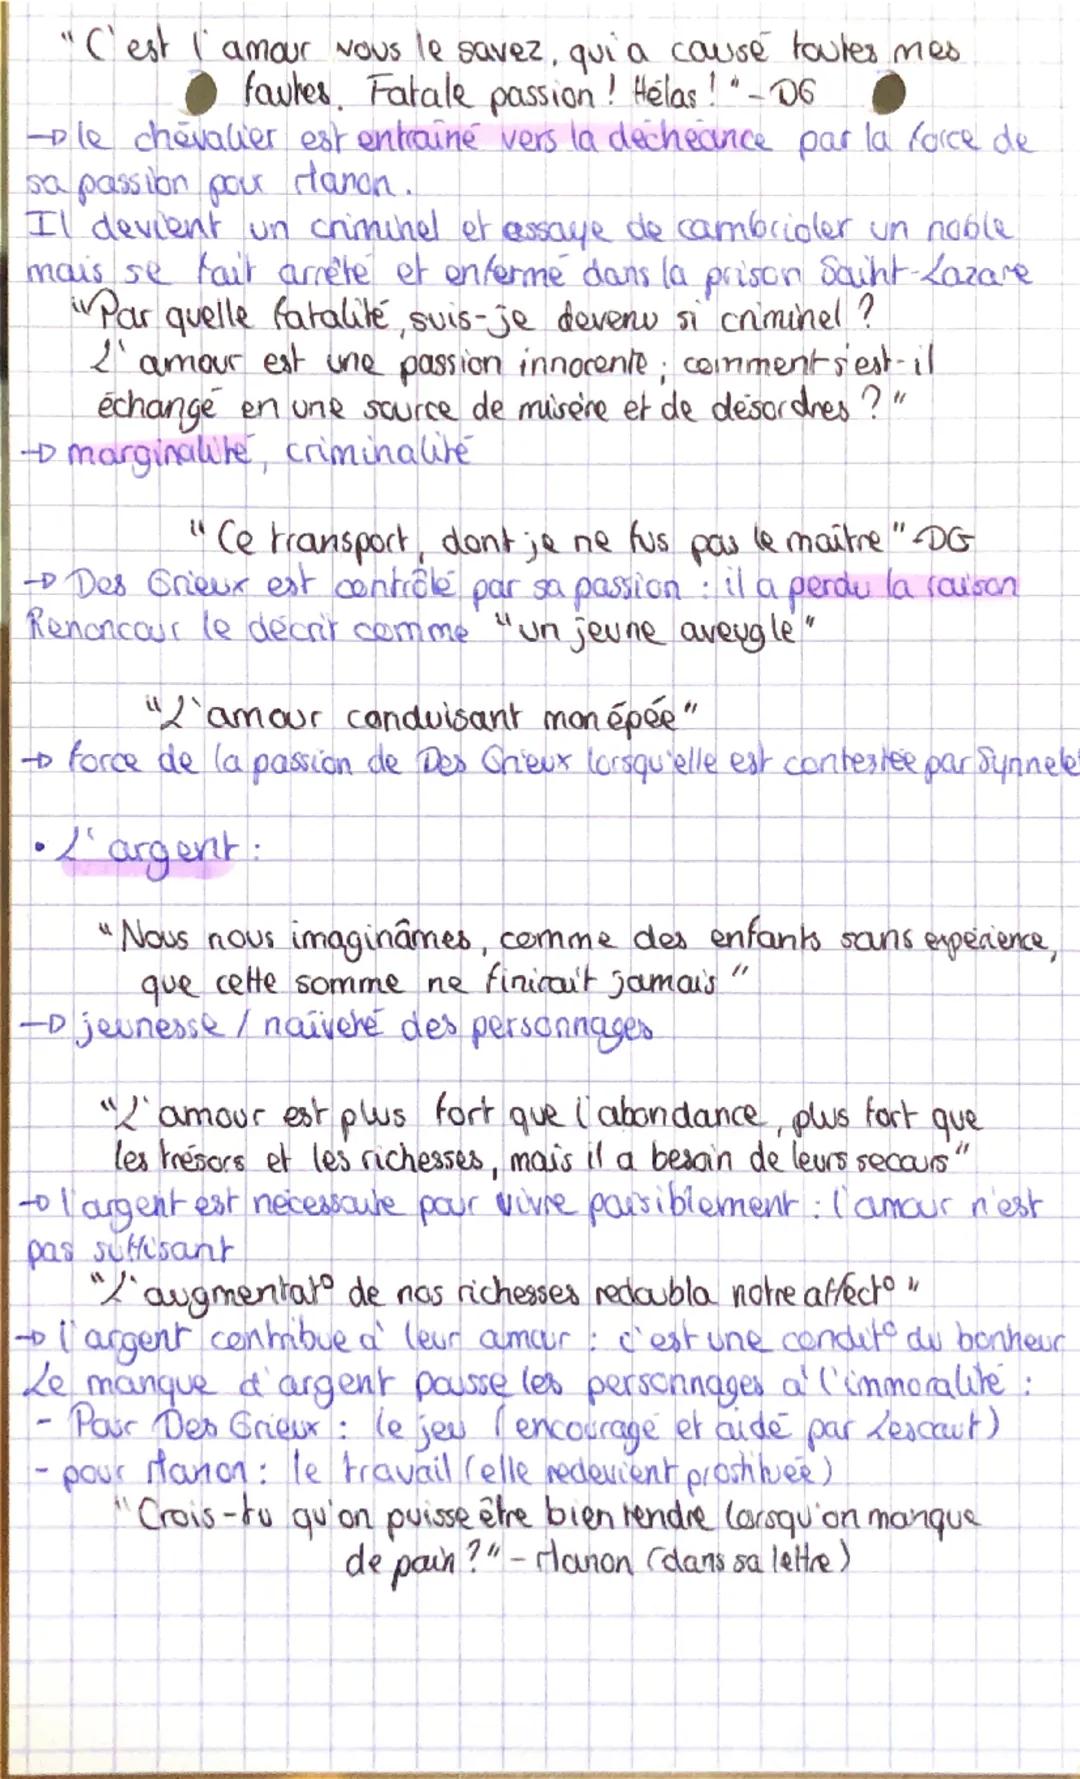 "C'est l'amour vous le savez, qui a causé toutes mes
fautes. Fatale passion ! Hélas ! " - DG
→ le chevalier est entraîné vers la déchéance par la force de
sa passion pour Manon.
Il devient un criminel et essaye de cambrioler un noble
mais se fait arrêté et enfermé dans la prison Saint-Lazare
"Par quelle fatalité, suis-je devenu si criminel ?
L'amour est une passion innocente ; comment s'est-il
échangé en une source de misère et de désordres ? "
→ marginalité, criminalité
"Ce transport, dont je ne fus pas le maître" -DG
→ Des Grieux est contrôlé par sa passion : il a perdu la raison
Renoncour le décrit comme "un jeune aveugle"
"L'amour conduisant mon épée"
→ force de la passion de Des Grieux lorsqu'elle est contestée par Synnelet
• L'argent :
"Nous nous imaginâmes, comme des enfants sans expérience,
que cette somme ne finirait jamais "
→ jeunesse / naïveté des personnages
"L'amour est plus fort que l'abondance, plus fort que
les trésors et les richesses, mais il a besoin de leurs secours"
→ l'argent est nécessaire pour vivre paisiblement : l'amour n'est
pas suffisant
"L'augmentat° de nos richesses redoubla notre affect° "
→ l'argent contribue à leur amour : c'est une condit° du bonheur
Le manque d'argent pousse les personnages à l'immoralité :
- Pour Des Grieux : le jeu (encouragé et aidé par Lescaut)
- pour Manon : le travail (elle redevient prostituée)
"Crois-tu qu'on puisse être bien tendre lorsqu'on manque
de pain ? " - Manon (dans sa lettre)